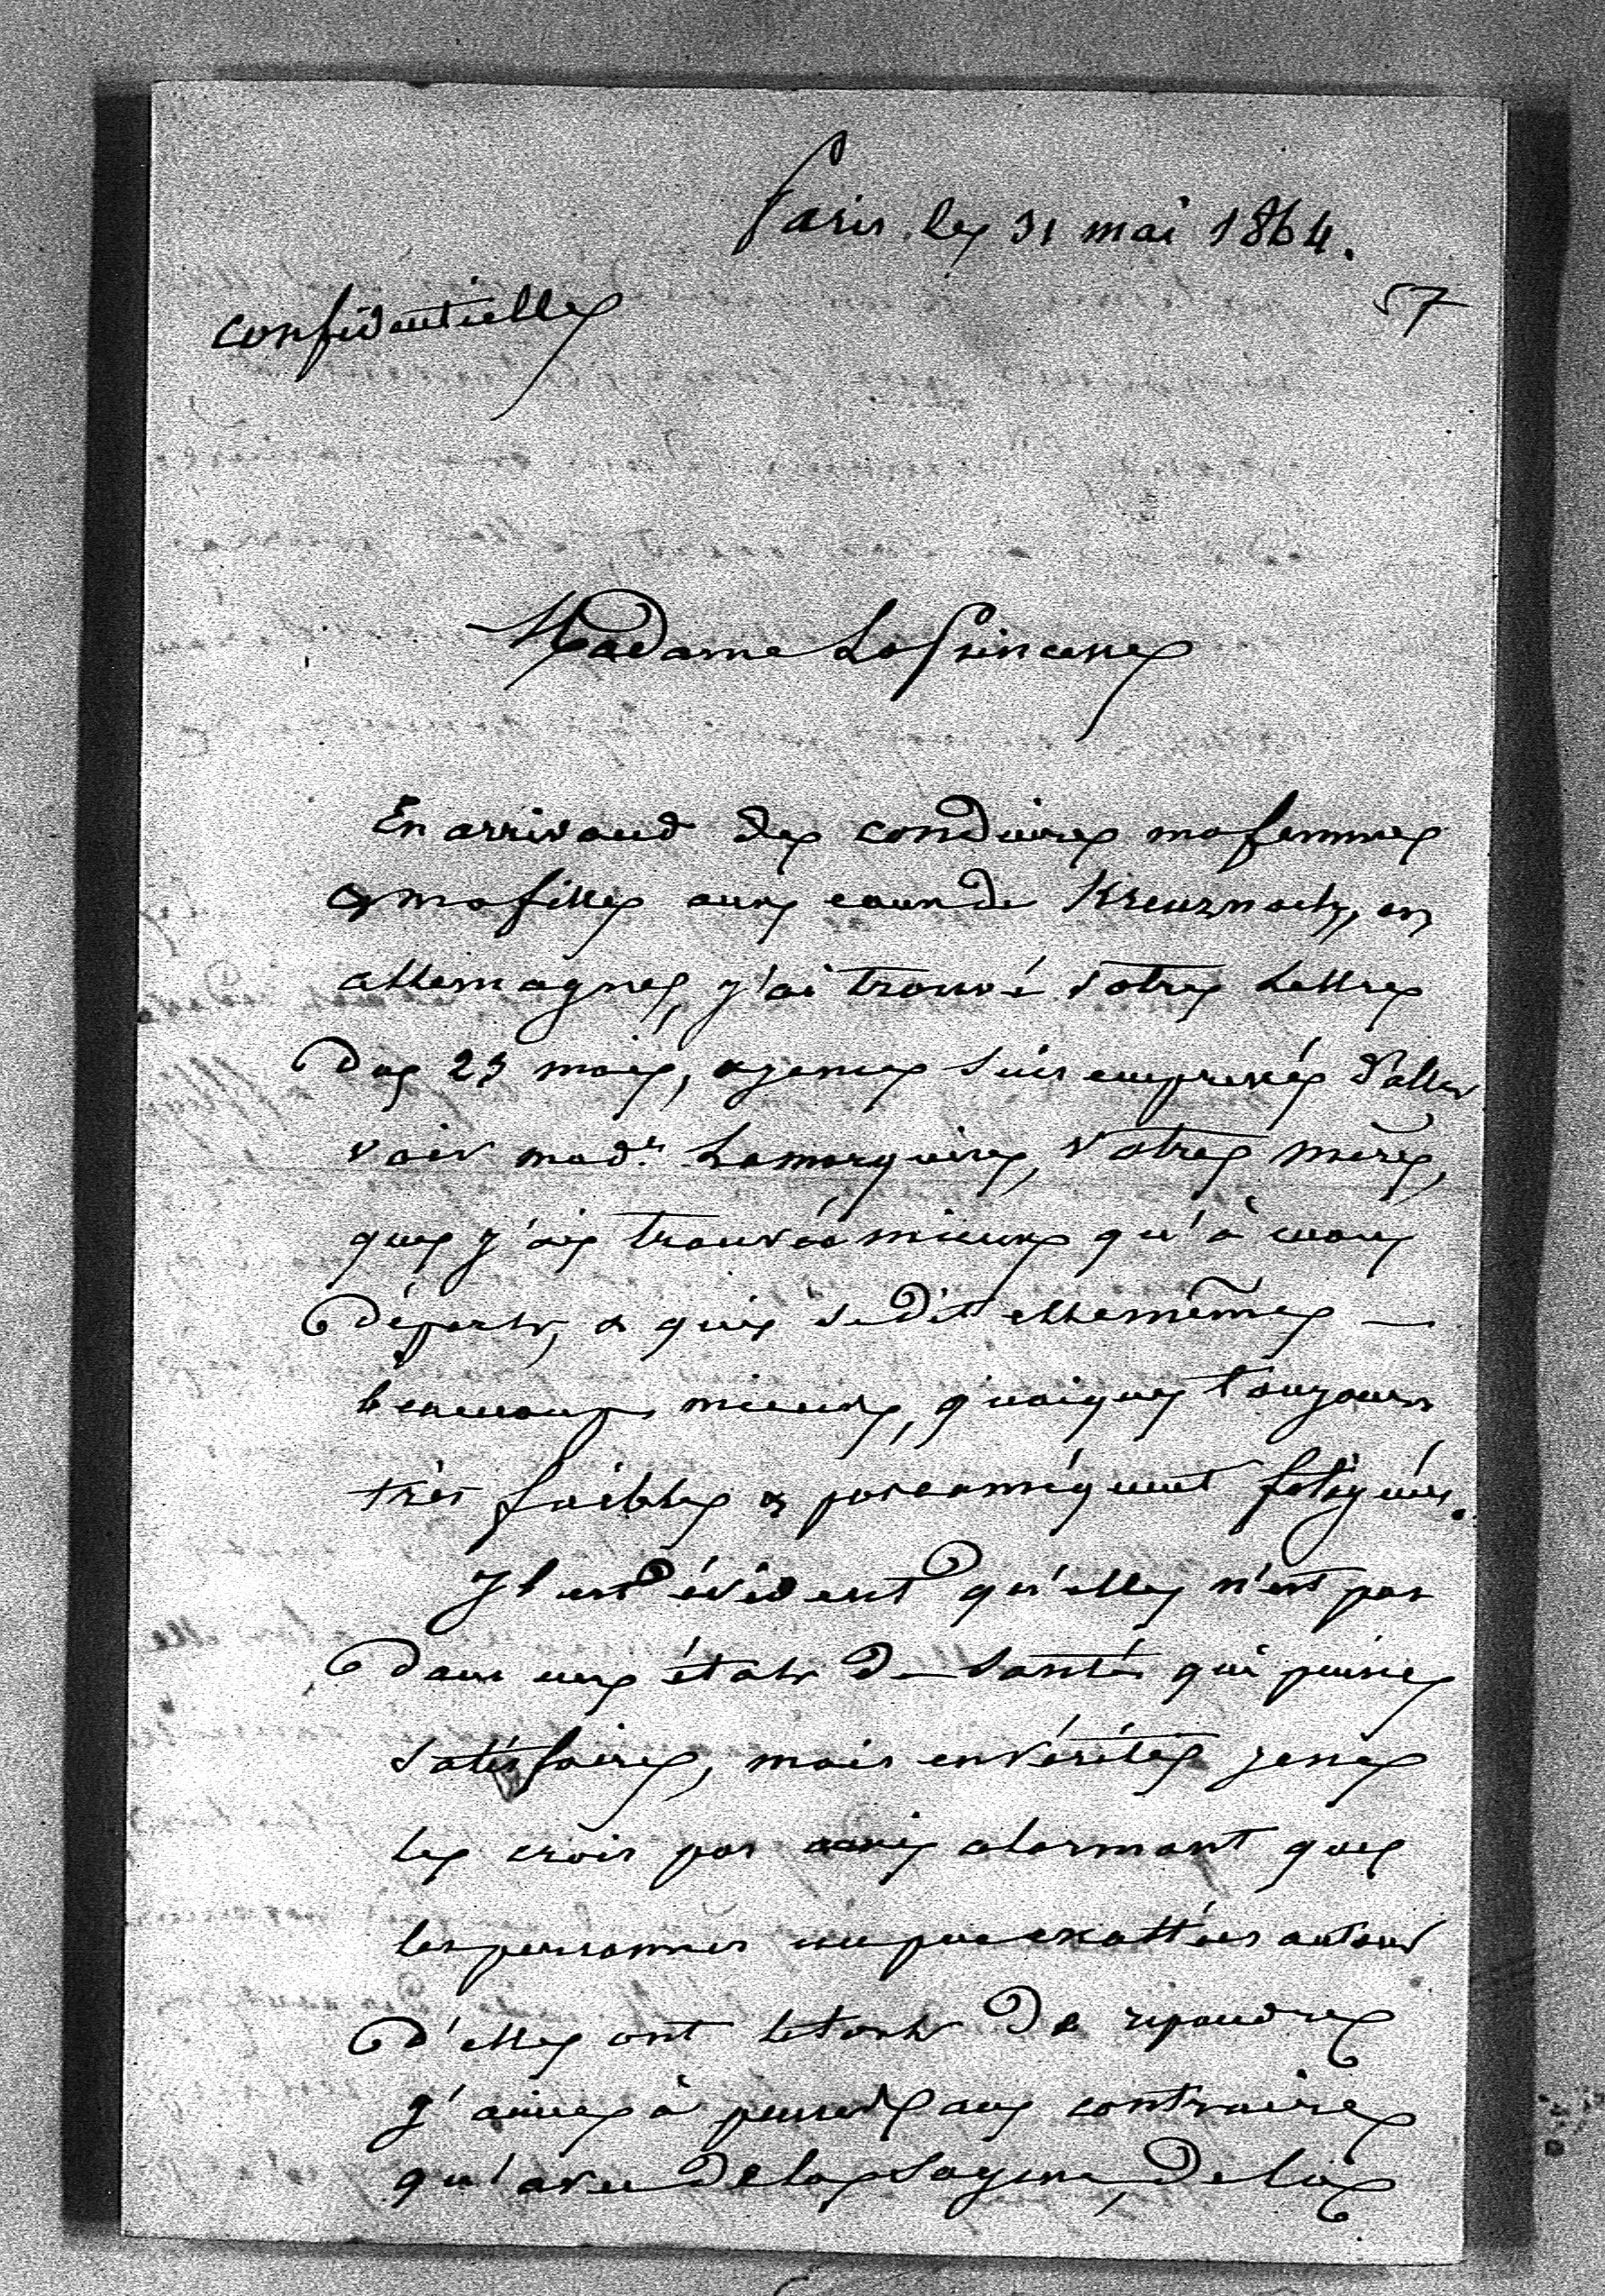 Paris le 31 mai 1864.
57
confidentielle
Madame La Princesse
En arrivant de conduire ma femme
& ma fille aux eaux de Kreuznach, en
allemagne, j'ai trouvé votre lettre
du 23 mai, & je me suis empressé d'aller
voir mad.e La marquise, votre mère,
que j'ai trouvée mieux qu'à mon
départ, & qui se dit elle même
beaucoup mieux, quoique toujours
très faible & par conséquent fatiguée.
Il est évident qu'elle n'est pas
dans un état de santé qui puisse
satisfaire, mais en vérité je ne
le crois pas aussi alarmant que
les personnes un peu exaltées autour
d'elle ont le tort de répandre
j'aime à penser au contraire
qu'avec de la sagesse, de la